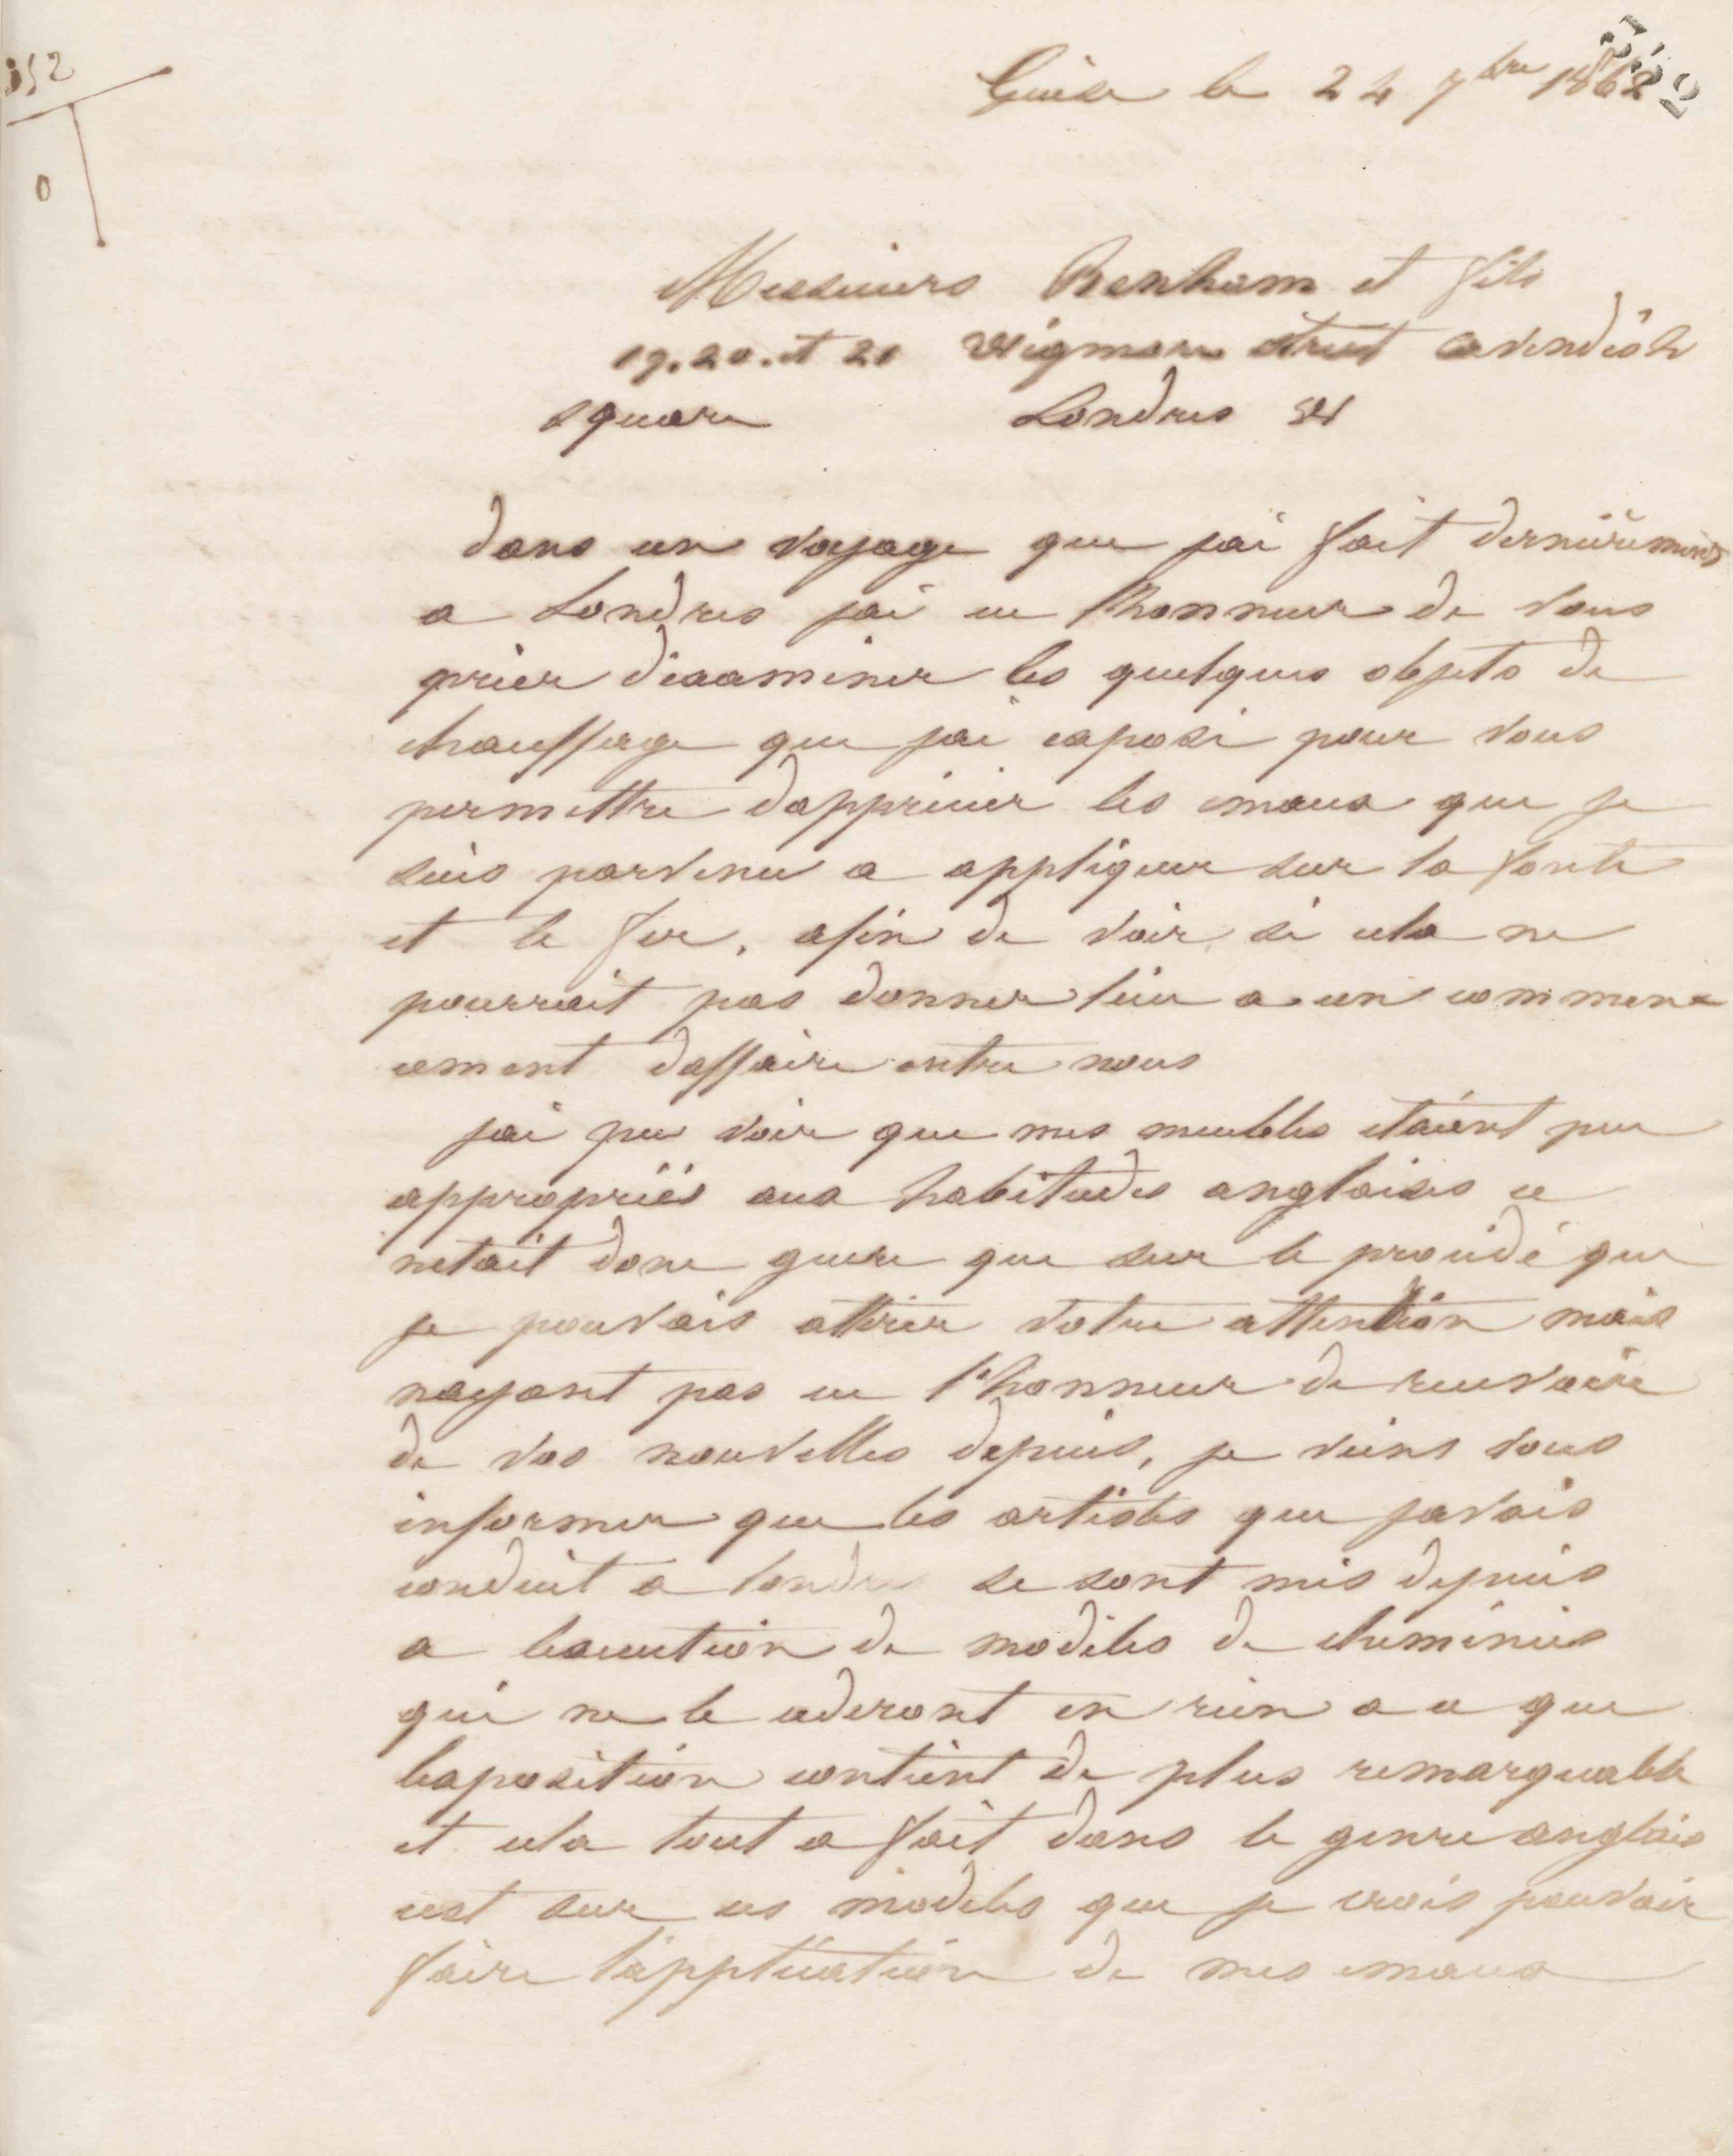 352
0
Guise le 24 7bre 1862
Messieurs Benham et fils
19.20. et 21 Wigmore street Cavendish
square Londres W
dans un voyage que jai fait dernièrement
a Londres jai eu lhonneur de vous
prier dexaminer les quelques objets de
chauffage que jai exposé pour vous
permettre dapprécier les emaux que je
suis parvenu a appliquer sur la fonte
et le fer, afin de voir si cela ne
pourrait pas donner lieu a un commen=
cement daffaire entre nous
jai pu voir que mes meubles etaient peu
appropriés aux habitudes anglaises ce
netait donc guere que sur le procédé que
je pouvais attirer votre attention mais
nayant pas eu l'honneur de recevoir
de vos nouvelles depuis, je viens vous
informer que les artistes que javais
conduit a londres se sont mis depuis
a lexecution de modèles de cheminées
qui ne le cederont en rien a ce que
lexposition contient de plus remarquable
et cela tout a fait dans le genre anglais
cest sur ces modèles que je crois pouvoir
faire l'application de mes emaux